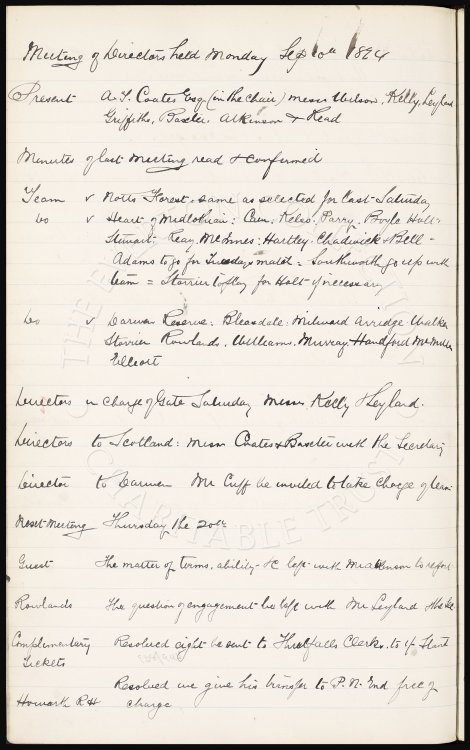 Meeting of Directors held Monday Sep 10th 1894
Present A. T. Coates Esq (in the chair) Messrs Wilson, Kelly, Leyland
Griffiths, Baxter, Atkinson & Head
Minutes of last Meeting read & confirmed
Team v Notts Forest. same as selected for last Saturday
Do v Heart of Midlothian: Cain: Kelso. Parry. Boyle Holt-
Stewart: Reay. McInnes: Hartley. Chadwick & Bell -
Adams to go for Tuesdays match = Southworth go up with
team = Storrier to play for Holt if necessary
Do v Darwen Reserve: Bleasdale. Milward Arridge Walker
Storrier Rowlands. Williams. Murray. Handford McMillan
Elliott
Directors in charge of Gate Saturday Messrs Kelly & Leyland.
Directors to Scotland: Messrs Coates & Baxter with the Secretary
Director to Darwen Mr Cuff be invited to take charge of team
Next Meeting Thursday the 20th
Guest The matter of terms, ability &c left with Mr Atkinson to report
Rowlands The question of engagement be left with Mr Leyland & the Sec
Complimentary Resolved eight be sent to Threlfalls Clerks, to
Tickets
Resolved we give his transfer to P. N. End free of
Howarth R H charge
THE
CHARITABLE TRUST